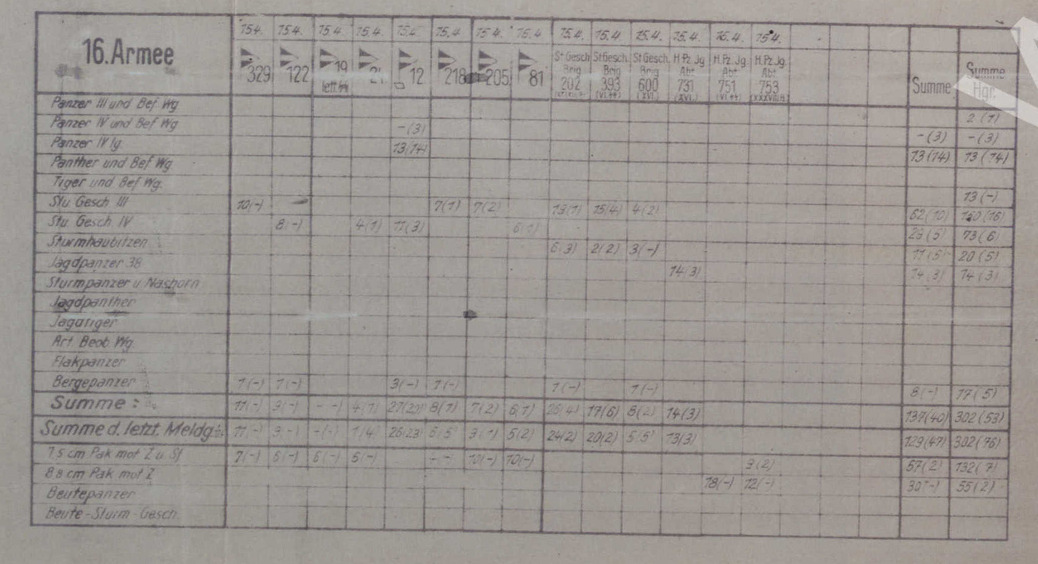 16.Armee
15.4. 15.4. 15.4. 15.4. 15.4. 15.4 15.4. 15.4 15.4. 15.4. 15.4. 15.4. 15.4. 15.4.
329 122 19 21 12 218 205 81 St Gesch Brig 202 St Gesch. Brig 393 St Gesch Brig 600 H.Pz.Jg Abt 731 H.Pz.Jg Abt 751 H.Pz.Jg Abt 753 Summe Summe Hgr.
Panzer III und Bef Wg 2 (1)
Panzer IV und Bef Wg -(3) -(3) -(3)
Panzer IV lg. 13(14) 13(14) 13(14)
Panther und Bef Wg.
Tiger und Bef Wg. 13(-)
Stu Gesch III 10(-) 7(1) 7(2) 13(1) 15(4) 4(2) 62(10) (16)
Stu. Gesch. IV 8(-) 4(1) 11(3) 6(1) 29(5) 73(6)
Sturmhaubitzen 6(3) 2(2) 3(-) 11(5) 20(5)
Jagdpanzer 38 14(3) 14(3) 14(3)
Sturmpanzer u Nashorn
Jagdpanther
Jagdtiger
Art. Beob. Wg.
Flakpanzer
Bergepanzer 1(-) 1(-) 3(-) 1(-) 1(-) 1(-) 8(-) 17(5)
Summe: 11(-) 9(-) -- 4(1) 27(20) 8(1) 7(2) 6(1) 20(4) 17(6) 8(2) 14(3) 137(40) 302(53)
Summe d. letzt. Meldg. 11(-) 9(-) -(-) 1(4) 26(23) 6(5) 9(-) 5(2) 24(2) 20(2) 5(5) 13(3) 129(47) 302(76)
7.5 cm Pak mot Z u. Sf 7(-) 6(-) 6(-) 6(-) -- 10(-) 10(-) 9(2) 57(2) 132(7)
8.8 cm Pak mot Z 18(-) 12(-) 30(-) 55(2)
Beutepanzer
Beute-Sturm-Gesch.